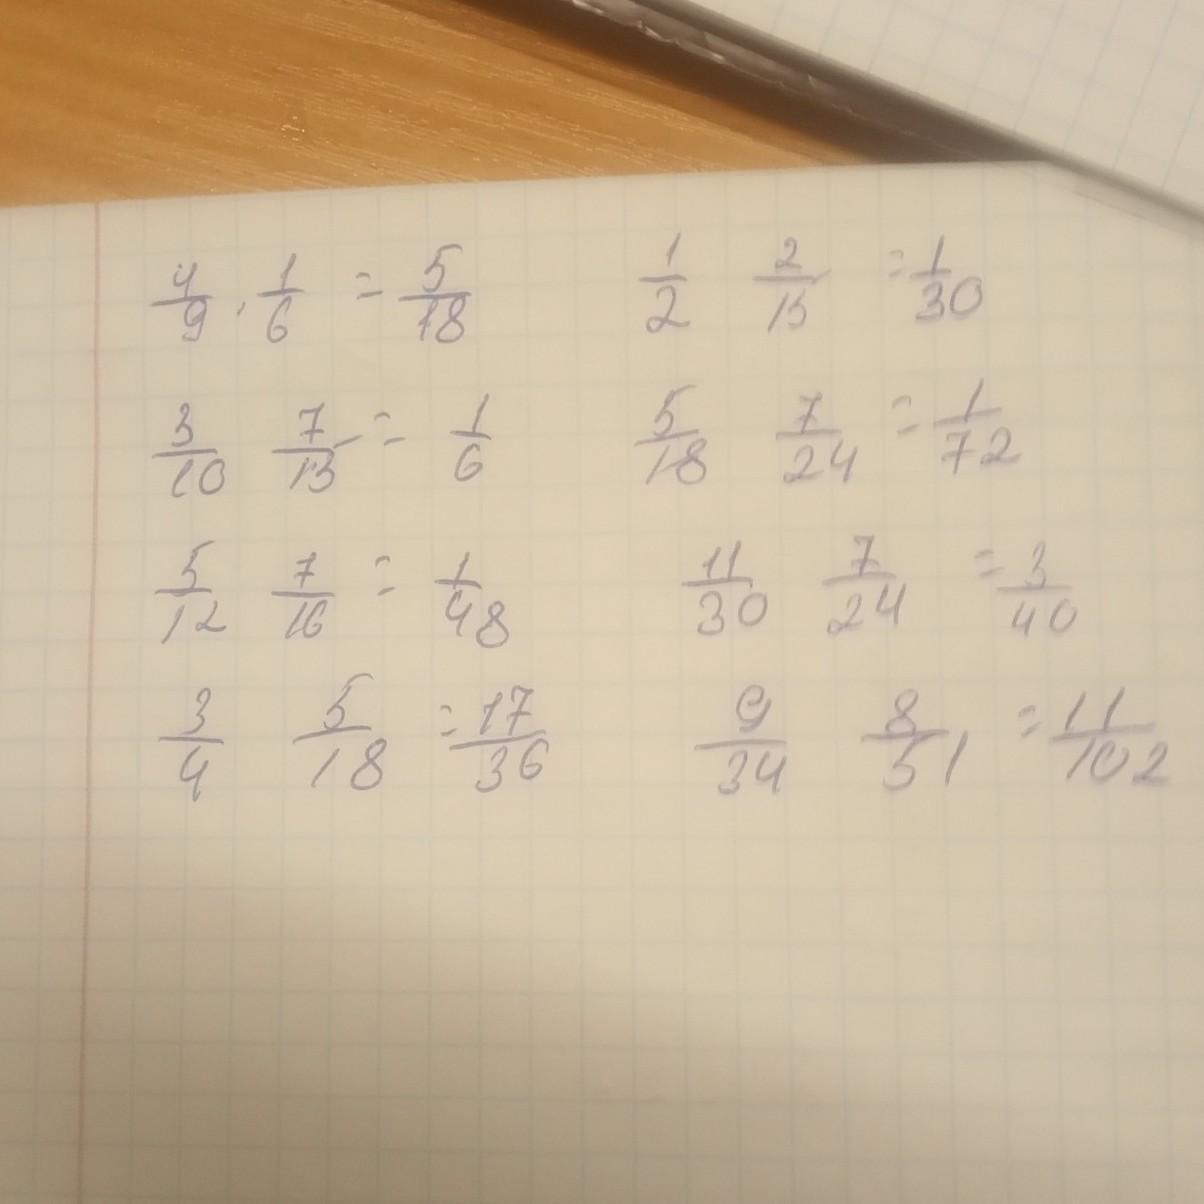 4/9 . 1/6 = 5/18    1/2 2/15 = 1/30
3/10 7/15 = 1/6    5/18 7/24 = 1/72
5/12 7/16 = 1/48    11/30 7/24 = 3/40
3/4 5/18 = 17/36    9/34 8/51 = 11/102